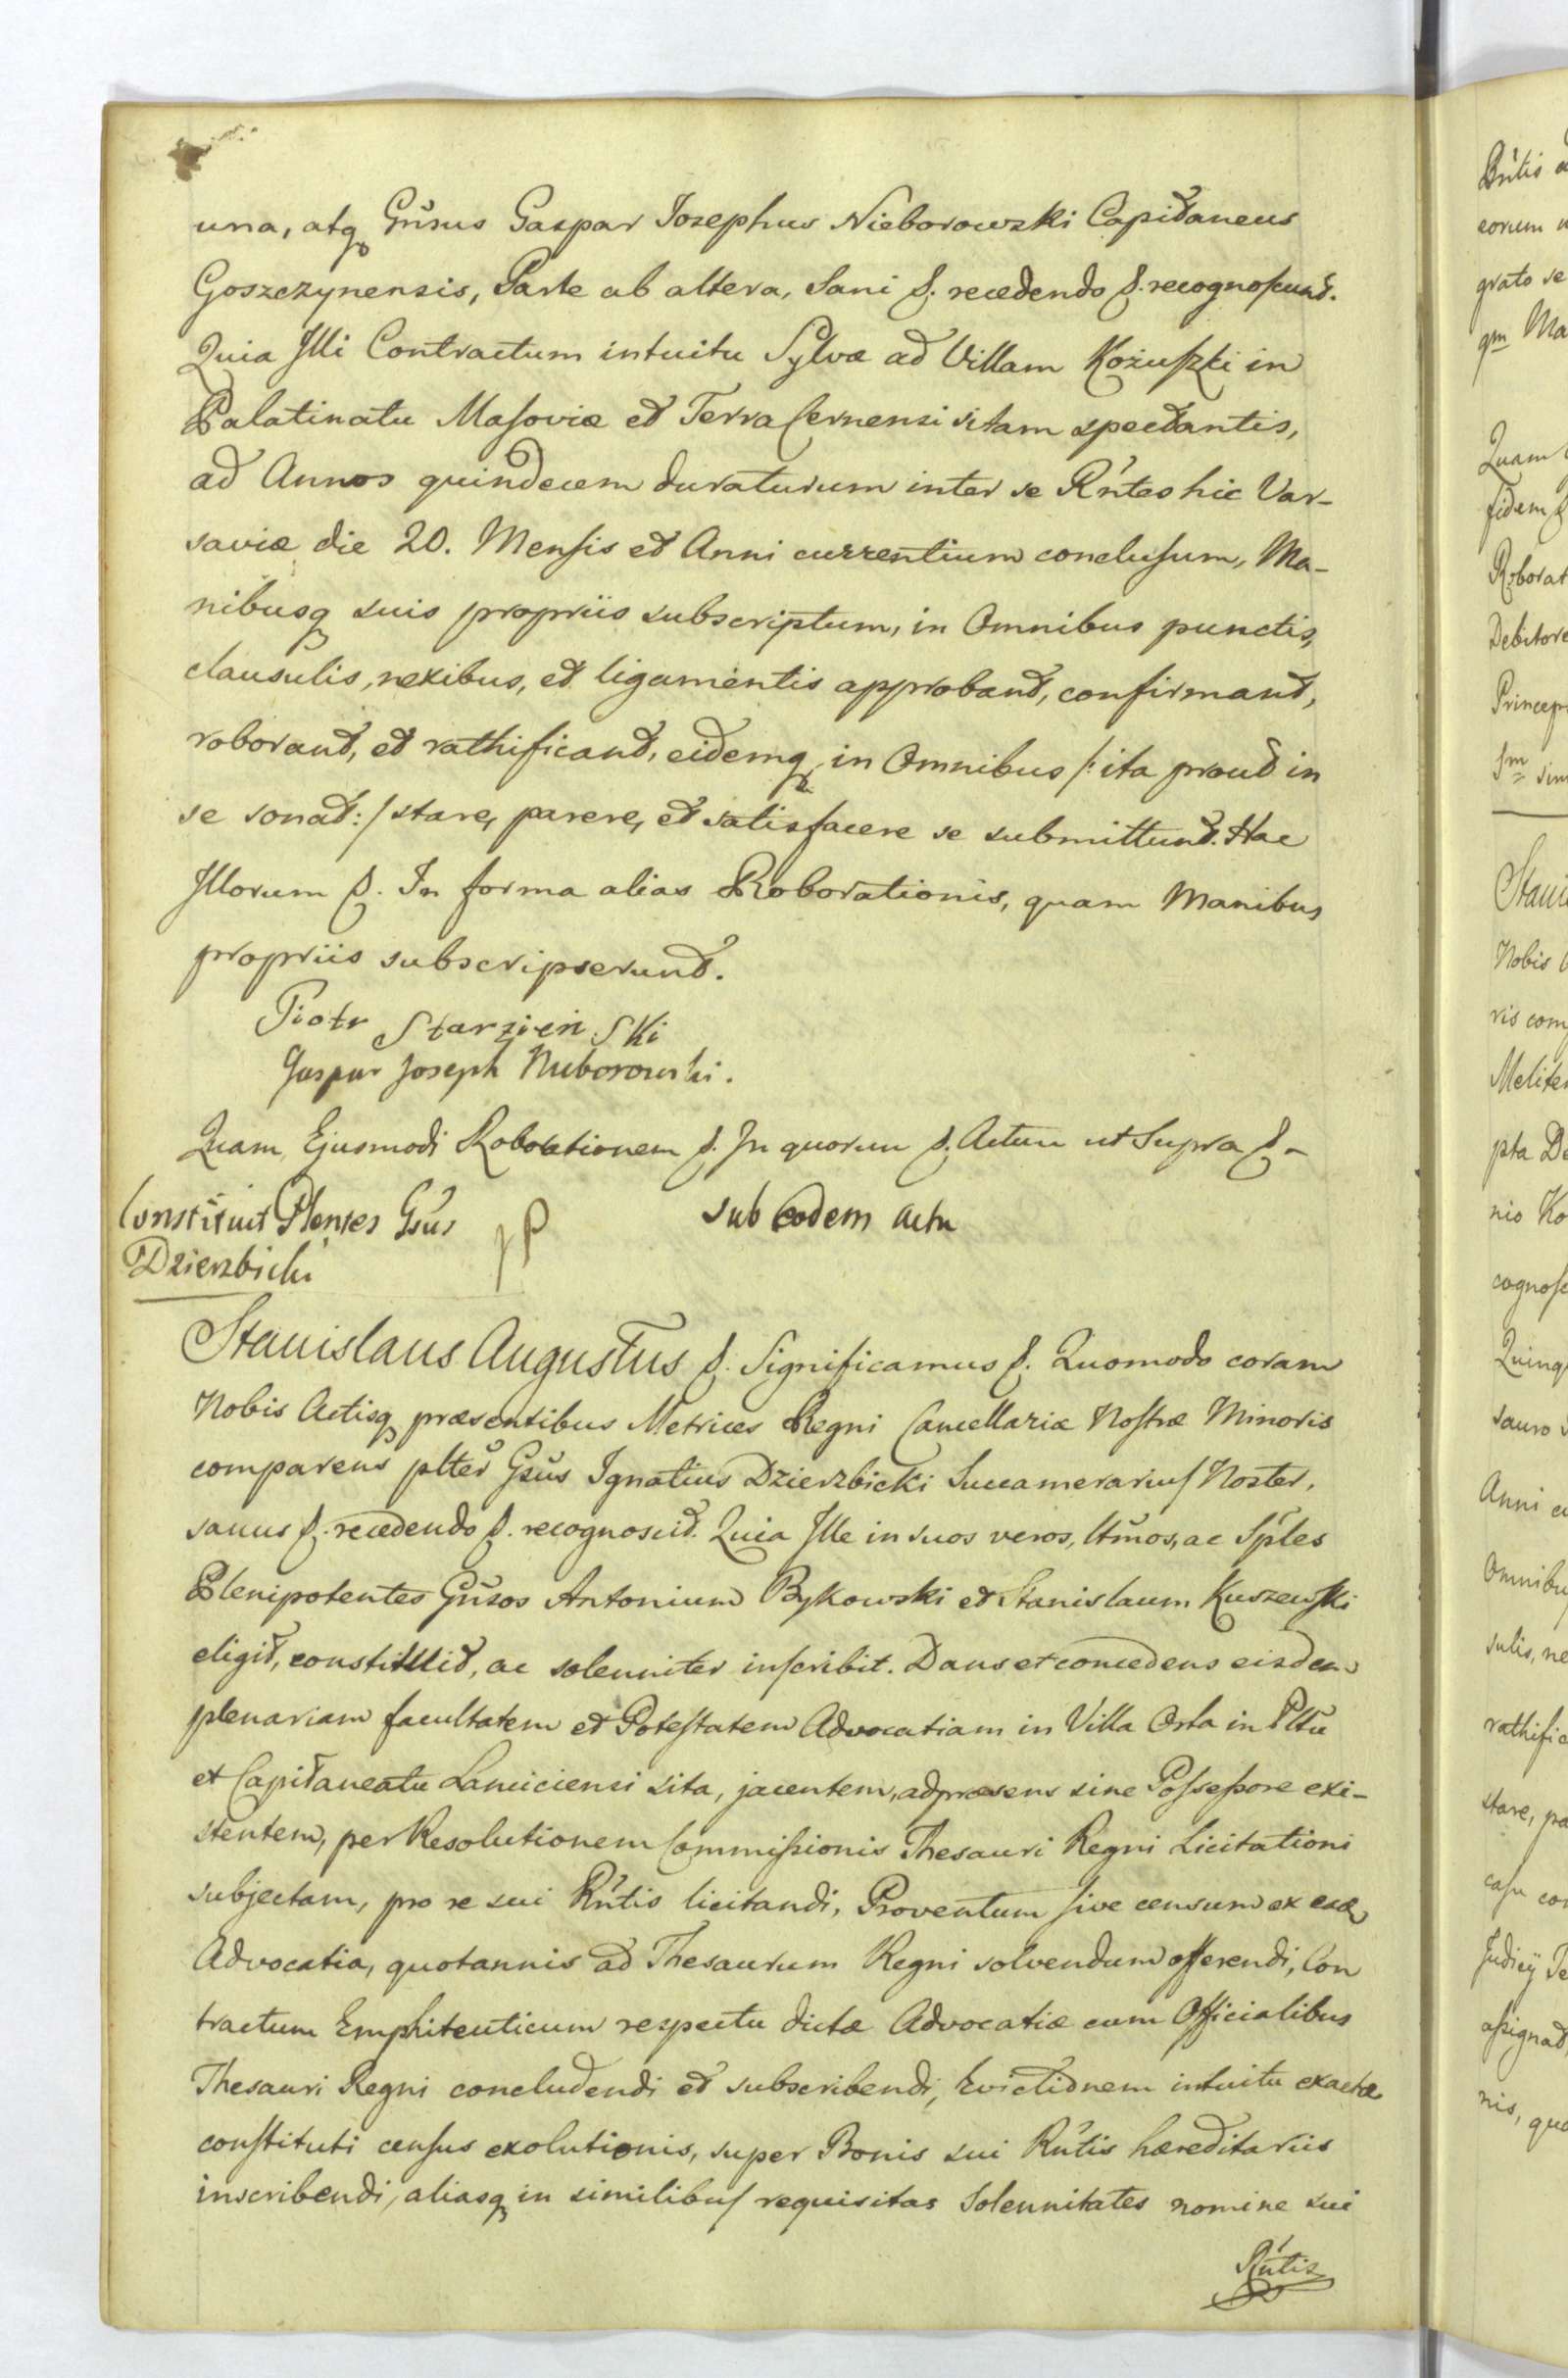 una, atq Gnsus Gaspar Josephus Nieborowski Capitaneus
Goszczynensis, Parte ab altera, sani p. recedendo p. recognoscunt.
Quia Illi Contractum intuitu Sylvæ ad Villam Kożuszki in
Palatinatu Masoviæ et Terra sitam spectantis,
ad Annos quindecem duraturum inter se Rntes hic Var-
saviæ die 20. Mensis et Anni currentium conclusum, Ma-
nibusq suis propriis subscriptum, in Omnibus punctis,
clausulis, nexibus, et ligamentis approbant, confirmant,
roborant, et rathificant, eidemq in Omnibus /: ita prout in
se sonat :/ stare, parere, et satisfacere se submittunt. Hac
Illorum p. In forma alias Roborationis, quam Manibus
propriis subscripserunt.
Piotr Starzieński
Gaspar Joseph Nieborowski.
Quam Ejusmodi Roborationem p. In quorum p. Actum ut Supra p. -
Constituit Plentes Gsus
Dzierzbicki
sub eodem actu
Stanislaus Augustus p. Significamus p. Quomodo coram
Nobis Actisq præsentibus Metrices Regni Cancellariæ Nostræ Minoris
comparens plter Gsus Ignatius Dzierzbicki Succamerarius Noster,
sanus p. recedendo p. recognoscit. Quia Ille in suos veros, ltmos, ac Sples
Plenipotentes Gnsos Antonium Bykowski et Stanislaum Kuszewski
eligit, constituit, ac solenniter inscribit. Dans et concedens eisdem
plenariam facultatem et Potestatem Advocatiam in Villa Orła in Pltu
et Capitaneatu Lanciciensi sita, jacentem, ad præsens sine Possessore exi-
stentem, per Resolutionem Commissionis Thesauri Regni Licitationi
subjectam, pro re sui Rntis licitandi, Proventum sive censum ex ead
Advocatia, quotannis ad Thesaurum Regni solvendum offerendi, Con
tractum Emphiteuticum respectu dictæ Advocatiæ cum Officialibus
Thesauri Regni concludendi et subscribendi, Evictionem intuitu exactæ
constituti census exolutionis, super Bonis sui Rntis hæreditariis
inscribendi, aliasq in similibus requisitas Solennitates nomine sui
Rntis